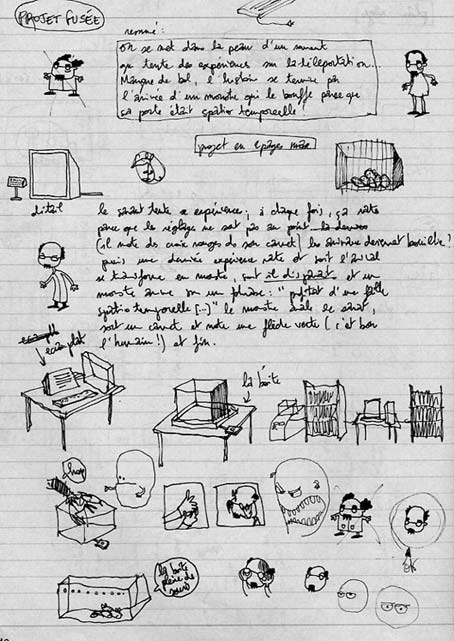 PROJET FUSÉE
resumé :
on se met dans la peau d'un savant
qui tente des expériences sur la téléportation...
Manque de bol, l'histoire se termine par
l'arrivée d'un monstre qui le bouffe parce que
sa porte était spatio temporelle.
projet en pages max
détail
le savant tente expérience, à chaque fois, ça rate
parce que le réglage ne soit pas au point...
(il note des croix rouges ds son carnet) les animaux devenat bouillie ?
puis une dernière expérience rate et soit l'animal
se transforme en monstre, soit il disparait et un
monstre arrive en un phrase : " profitat d'une faille
spatio temporelle [...]" le monstre avale le savat,
sort un carnet et note une flèche verte (c'est bon
l'humain !) et fin.
la boîte
hop
la boite
pleine de
souris